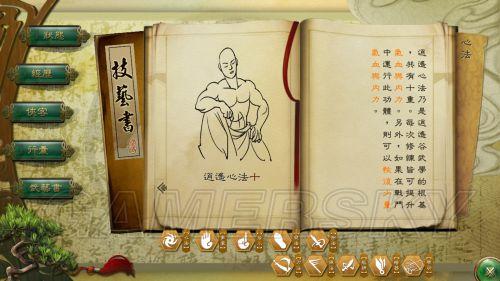 狀態
經歷
俠客
行囊
武藝書
技藝書
逍遙心法十
心法
逍遙心法乃是逍遙谷武學的根基
，共有十重。每次修練皆可提升
氣血與內力。另外，如果在戰鬥
中運行此功體，則可以恢復少量
氣血與內力。
GAMERSKY